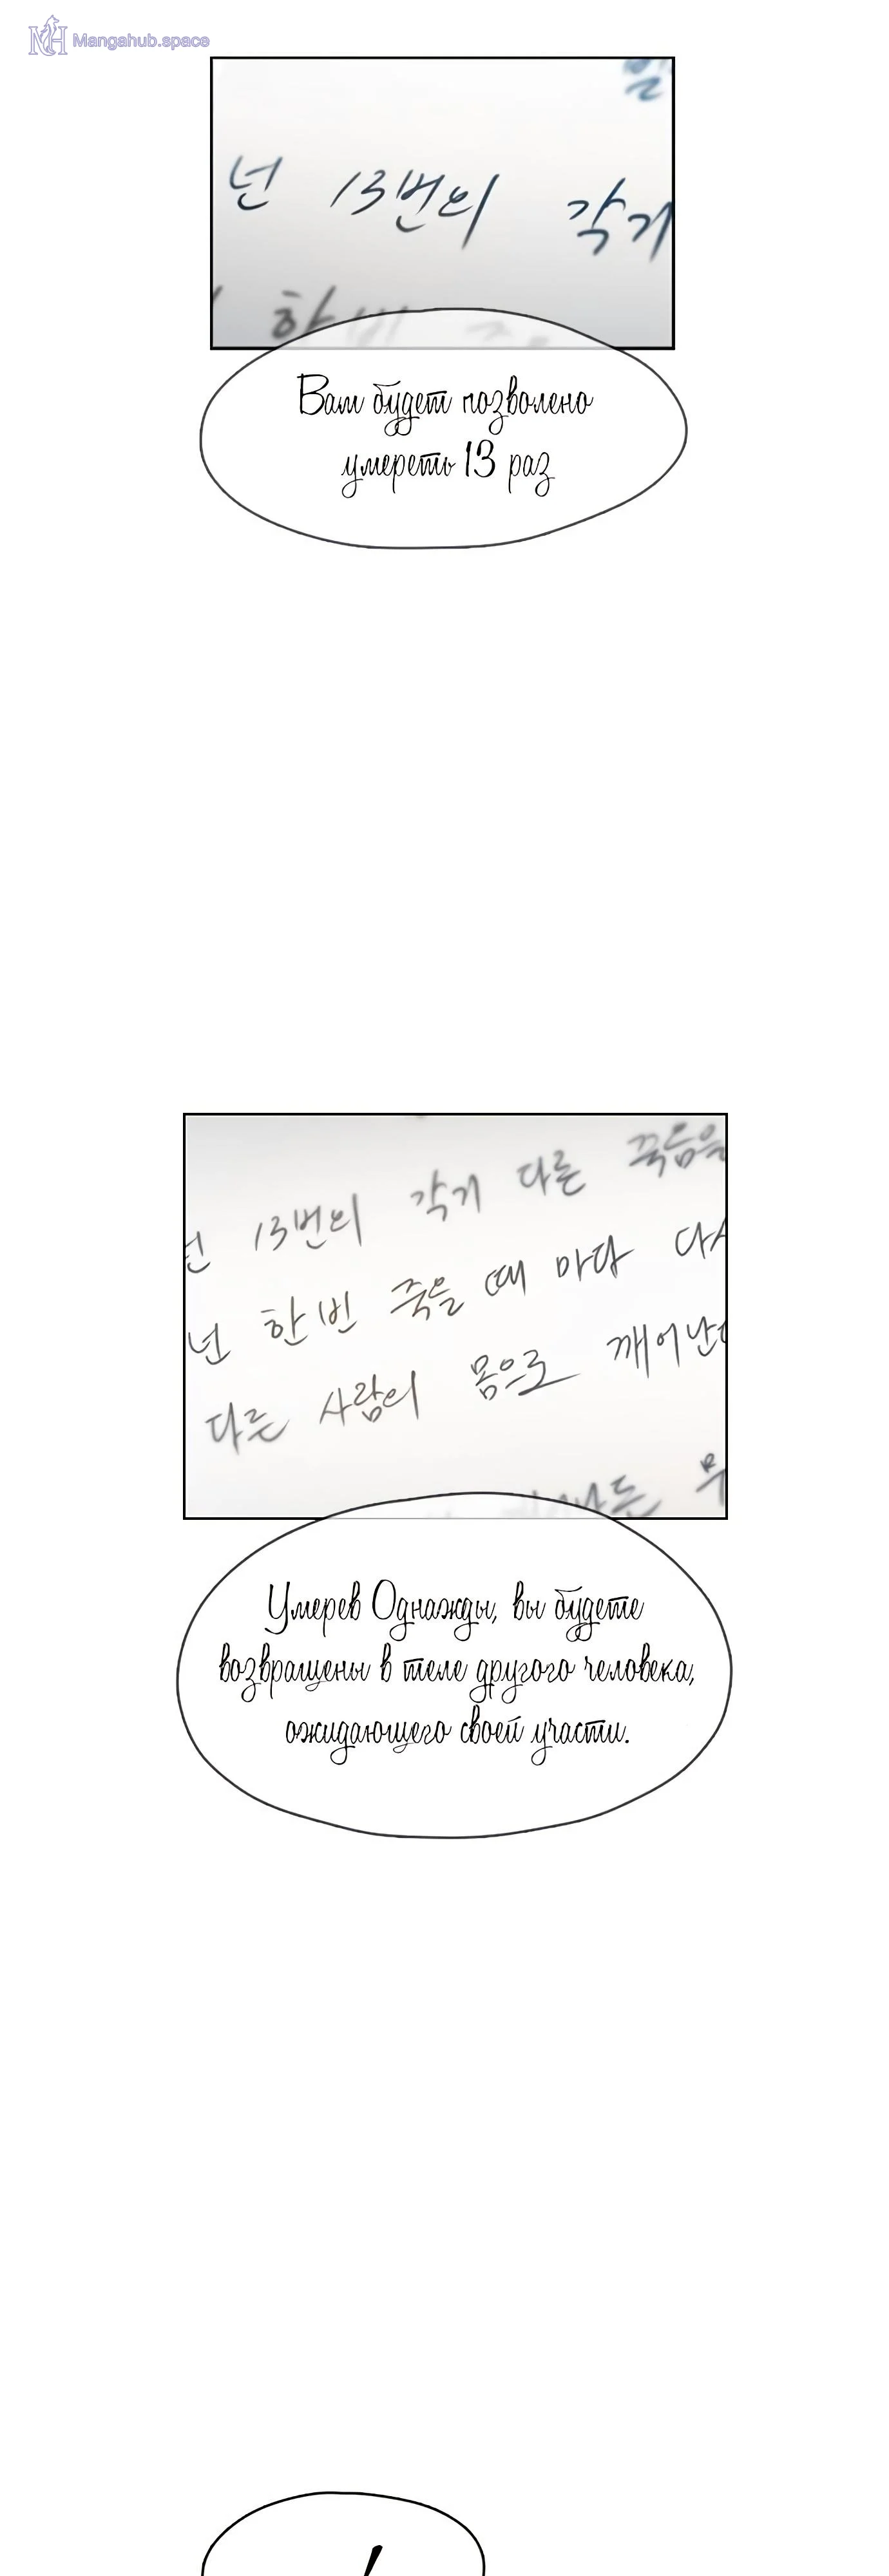 Mangahub.space
넌 13번의 각기
한번
Вам будет позволено
умереть 13 раз
넌 13번의 각기 다른 죽음을
넌 한번 죽을 때 마다 다시
다른 사람의 몸으로 깨어난다
Умерев Однажды, вы будете
возвращены в теле другого человека,
ожидающего своей участи.